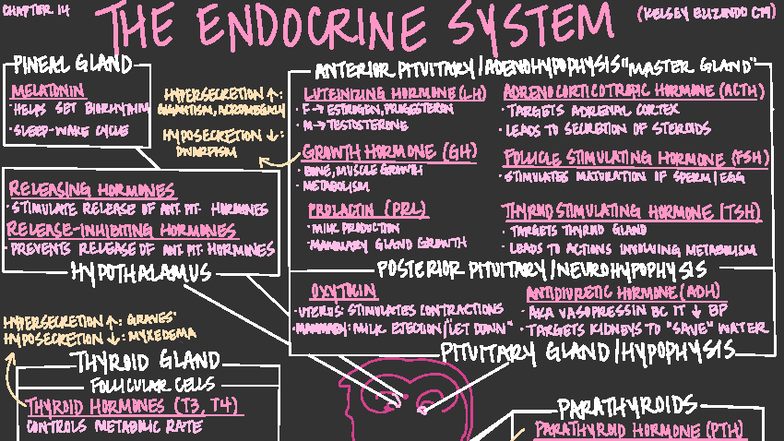 CHAPTER 14
THE ENDOCRINE SYSTEM
(KELSEY ELIZONDO CM)
PINEAL GLAND
MELATONIN
• HELPS SET BIORHYTHM
• SLEEP-WAKE CYCLE
HYPERSECRETION ↑:
GIGANTISM, ACROMEGALY
HYPOSECRETION ↓:
DWARFISM
RELEASING HORMONES
• STIMULATE RELEASE OF ANT. PIT. HORMONES
RELEASE-INHIBITING HORMONES
• PREVENTS RELEASE OF ANT. PIT. HORMONES
HYPOTHALAMUS
ANTERIOR PITUITARY/ADENOHYPOPHYSIS "MASTER GLAND"
LUTEINIZING HORMONE (LH)
• F → ESTROGEN, PROGESTERON
• M → TESTOSTERONE
GROWTH HORMONE (GH)
• BONE, MUSCLE GROWTH
• METABOLISM
PROLACTIN (PRL)
• MILK PRODUCTION
• MAMMARY GLAND GROWTH
ADRENOCORTICOTROPIC HORMONE (ACTH)
• TARGETS ADRENAL CORTEX
• LEADS TO SECRETION OF STEROIDS
FOLLICLE STIMULATING HORMONE (FSH)
• STIMULATES MATURATION OF SPERM/EGG
THYROID STIMULATING HORMONE (TSH)
• TARGETS THYROID GLAND
• LEADS TO ACTIONS INVOLVING METABOLISM
POSTERIOR PITUITARY/NEUROHYPOPHYSIS
OXYTICIN
• UTERUS: STIMULATES CONTRACTIONS
• MAMMARY: MILK EJECTION/"LET DOWN"
ANTIDIURETIC HORMONE (ADH)
• AKA VASOPRESSIN BC IT ↓ BP
• TARGETS KIDNEYS TO "SAVE" WATER
PITUITARY GLAND/HYPOPHYSIS
HYPERSECRETION ↑: GRAVES'
HYPOSECRETION ↓: MYXEDEMA
THYROID GLAND
FOLLICULAR CELLS
THYROID HORMONES (T3, T4)
CONTROLS METABOLIC RATE
PARATHYROIDS
PARATHYROID HORMONE (PTH)